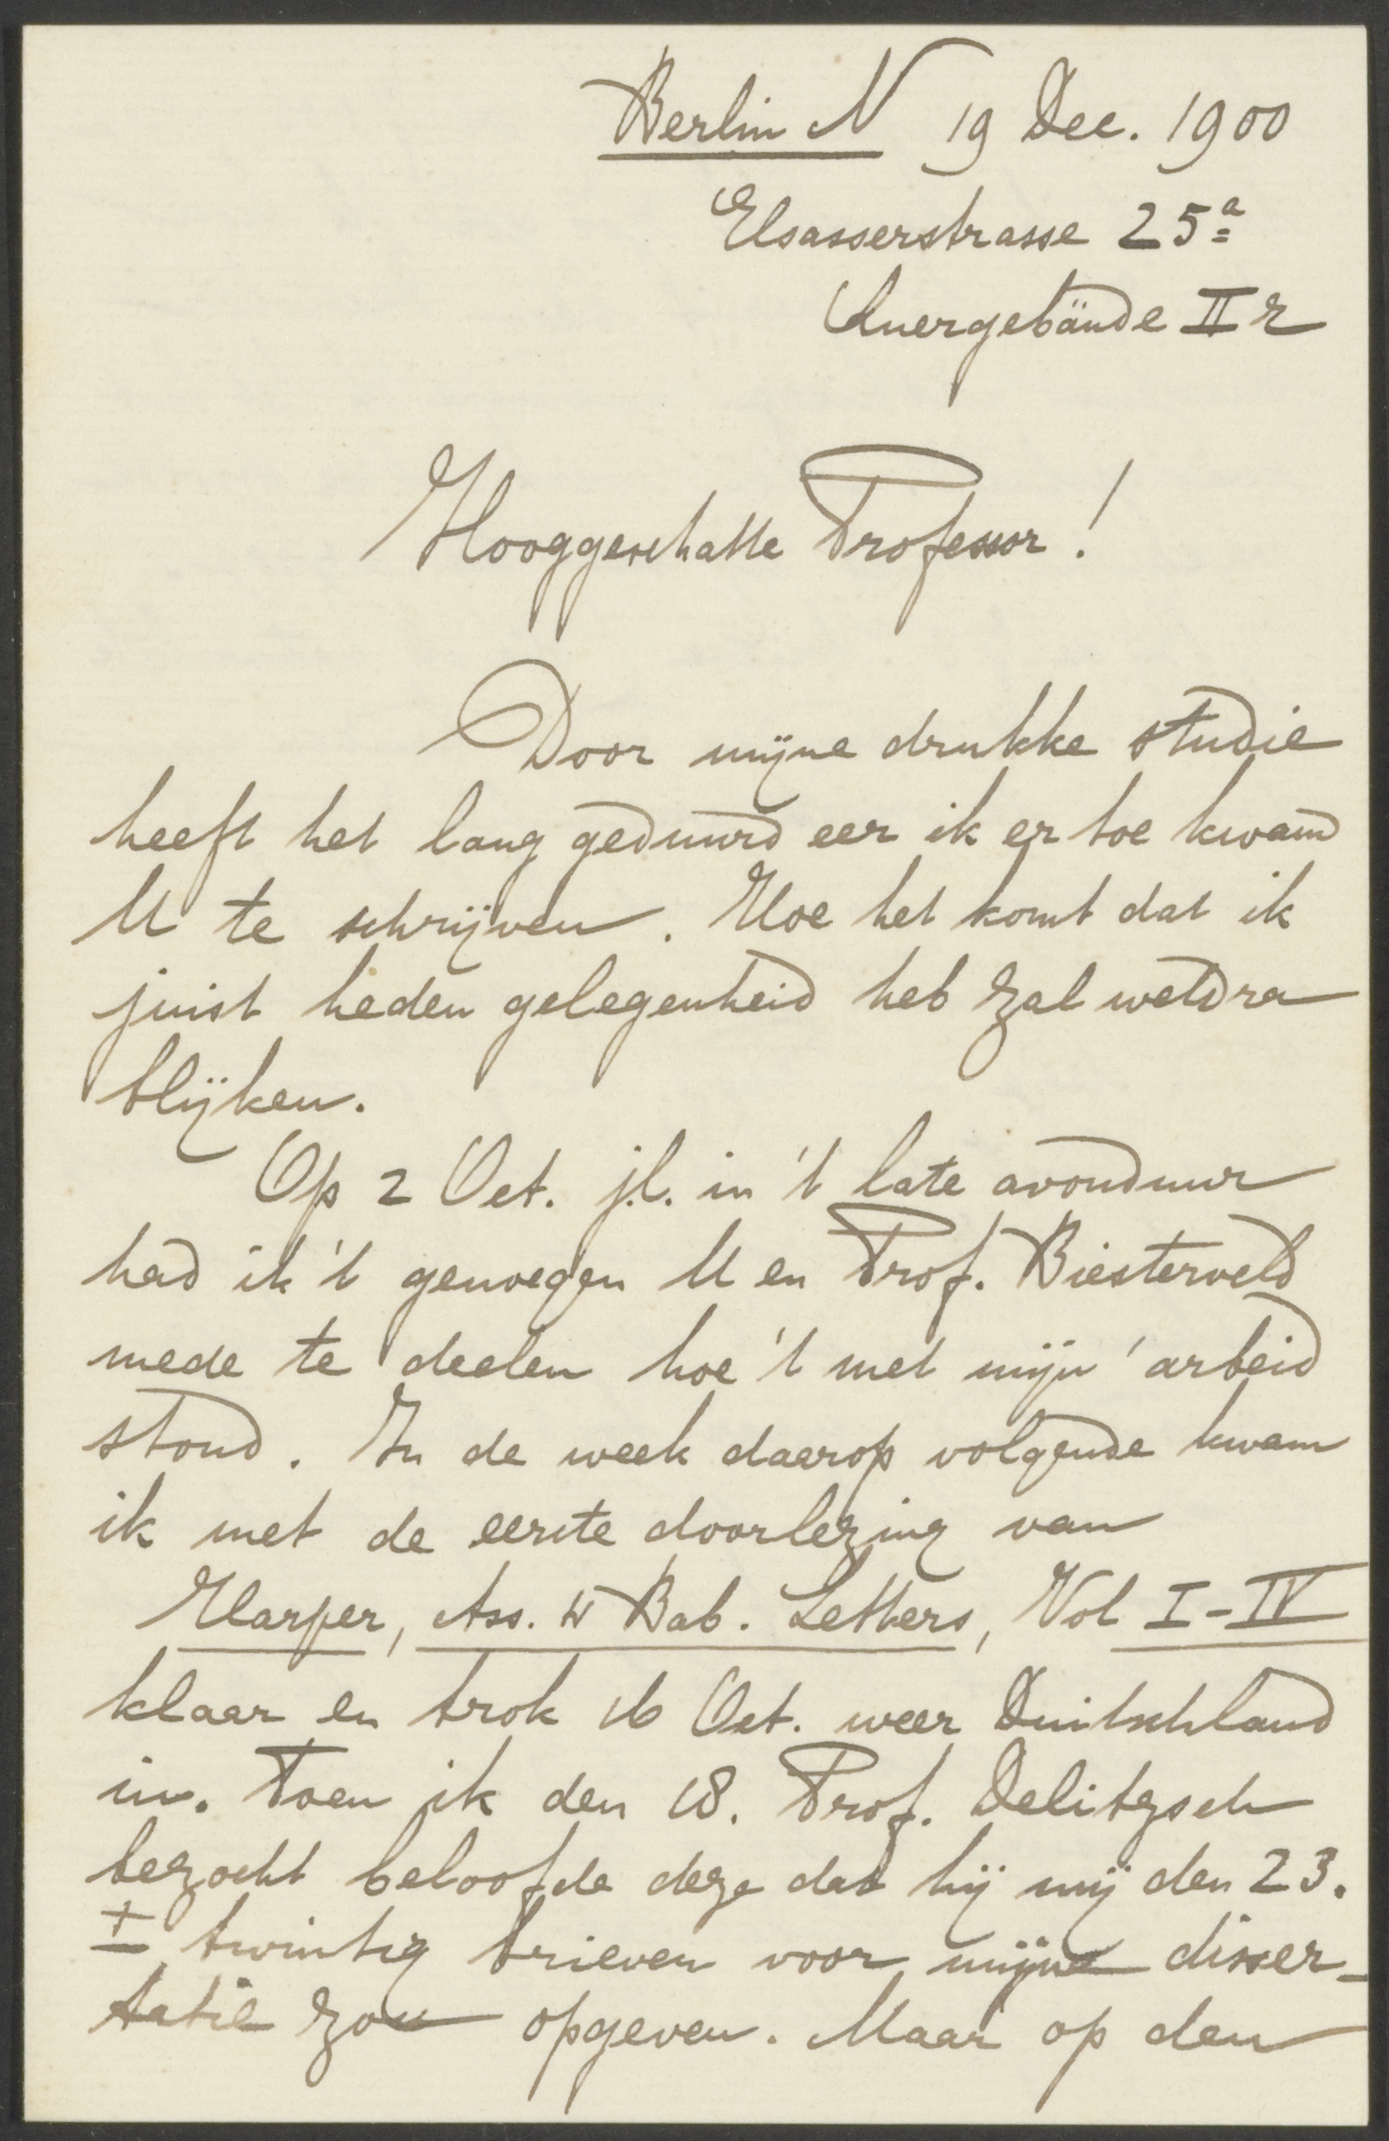 Berlin N 19 Dec. 1900
Elsasserstrasse 25a
Quergebäude II r
Hooggeschatte Professor!
Door mijne drukke studie
heeft het lang geduurd eer ik er toe kwam
U te schrijven. Hoe het komt dat ik
juist heden gelegenheid heb zal weldra
blijken.
Op 2 Oct. j.l. in 't late avonduur
had ik 't genoegen U en Prof. Biesterveld
mede te deelen hoe 't met mijn' arbeid
stond. In de week daarop volgende kwam
ik met de eerste doorlezing van
Harper, Ass. & Bab. Letters, Vol I-IV
klaar en trok 16 Oct. weer Duitschland
in. Toen ik den 18. Prof. Delitzsch
bezocht beloofde deze dat hij mij den 23.
± twintig brieven voor mijne disser-
tatie zou opgeven. Maar op den